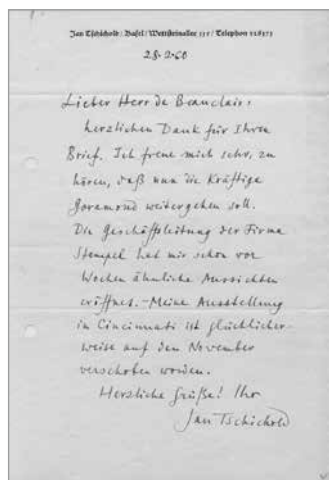 Jan Tschichold / Basel / Wettsteinallee / Telephon
28.2.60
Lieber Herr de Beauclair:
herzlichen Dank für Ihren
Brief. Ich freue mich sehr, zu
hören, daß nun die Kräftige
Garamond weitergehen soll.
Die Geschäftsleitung der Firma
Stempel hat mir schon vor
Wochen ähnliche Aussichten
eröffnet. – Meine Ausstellung
in Cincinnati ist glücklicher-
weise auf den November
verschoben worden.
Herzliche Grüße! Ihr
Jan Tschichold